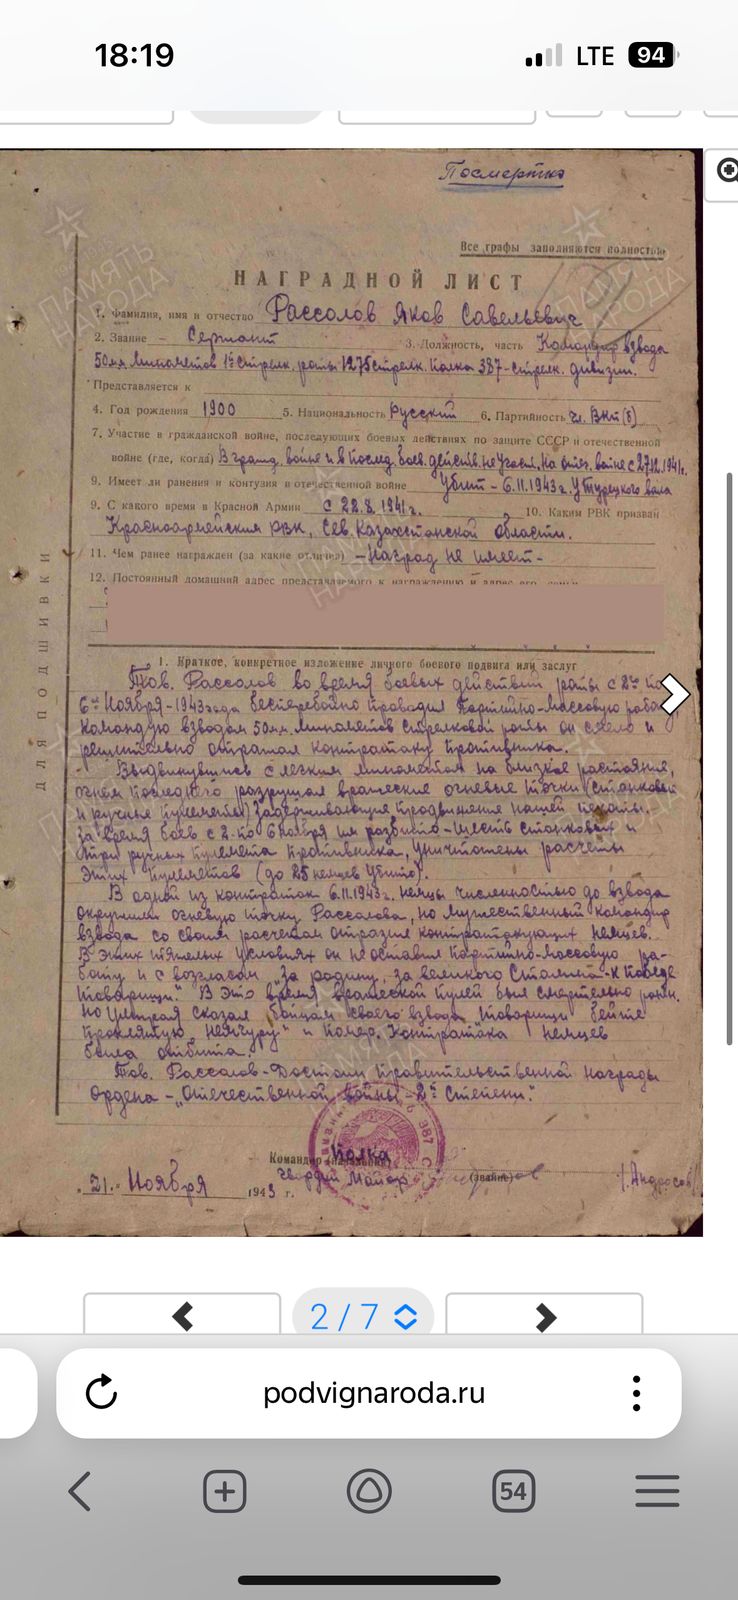 18:19
LTE
94
Посмертно
Все графы заполняются полностью
НАГРАДНОЙ ЛИСТ
1. Фамилия, имя и отчество Рассолов Яков Савельевич
2. Звание – Сержант 3. Должность, часть Командир взвода
50мм минометов 1й стрелк. роты 1275 стрелк. полка 387-стрелк. дивизии.
Представляется к
4. Год рождения 1900 5. Национальность Русский 6. Партийность чл. ВКП(б)
7. Участие в гражданской войне, последующих боевых действиях по защите СССР и отечественной
войне (где, когда) В гражд. войне и в послед. боев. действ. не участ. На отеч. войне с 27.12.1941г.
9. Имеет ли ранения и контузия в отечественной войне Убит – 6.11.1943г. у Турецкого вала
9. С какого время в Красной Армии с 22.8.1941г. 10. Каким РВК призван
Красноармейским РВК, Сев. Казахстанской области.
11. Чем ранее награжден (за какие отличия) – Наград не имеет –
12. Постоянный домашний адрес представляемого к награждению и адрес его семьи
ДЛЯ ПОДШИВКИ
1. Краткое, конкретное изложение личного боевого подвига или заслуг
Тов. Рассолов во время боевых действий роты с 2го по
6е Ноября-1943 года бесперебойно проводил Партийно-массовую работу,
командуя взводом 50мм. минометов стрелковой роты он смело и
решительно отражал контратаку противника.
Выдвинувшись с легким минометом на близкое растояние,
огнем последнего разрушал вражеские огневые точки (станковые
и ручные пулеметы) задерживающие продвижение нашей пехоты.
За время боев с 2 по 6 ноября им разбито – шесть станковых и
три ручных пулемета противника, уничтожены расчеты
этих пулеметов (до 25 немцев убито).
В одной из контратак 6.11.1943г. немцы численностью до взвода
окружили огневую точку Рассолова, но мужественный командир
взвода со своим расчетом отразил контратакующих немцев.
В этих тяжелых условиях он не оставил партийно-массовую ра-
боту и с возгласом "за родину, за великого Сталина – к победе
товарищи." В это время вражеской пулей был смертельно ранен.
Но умирая сказал бойцам своего взвода "товарищи бейте
проклятую немчуру" и помер. Контратака немцев
была отбита.
Тов. Рассолов – достоин правительственной награды
Ордена – "Отечественной войны – 2й степени."
Командир полка
Гвардии Майор (звание) /Андросов
"21" Ноября 1943 г.
387
ПАМЯТЬ НАРОДА
2 / 7
podvignaroda.ru
54